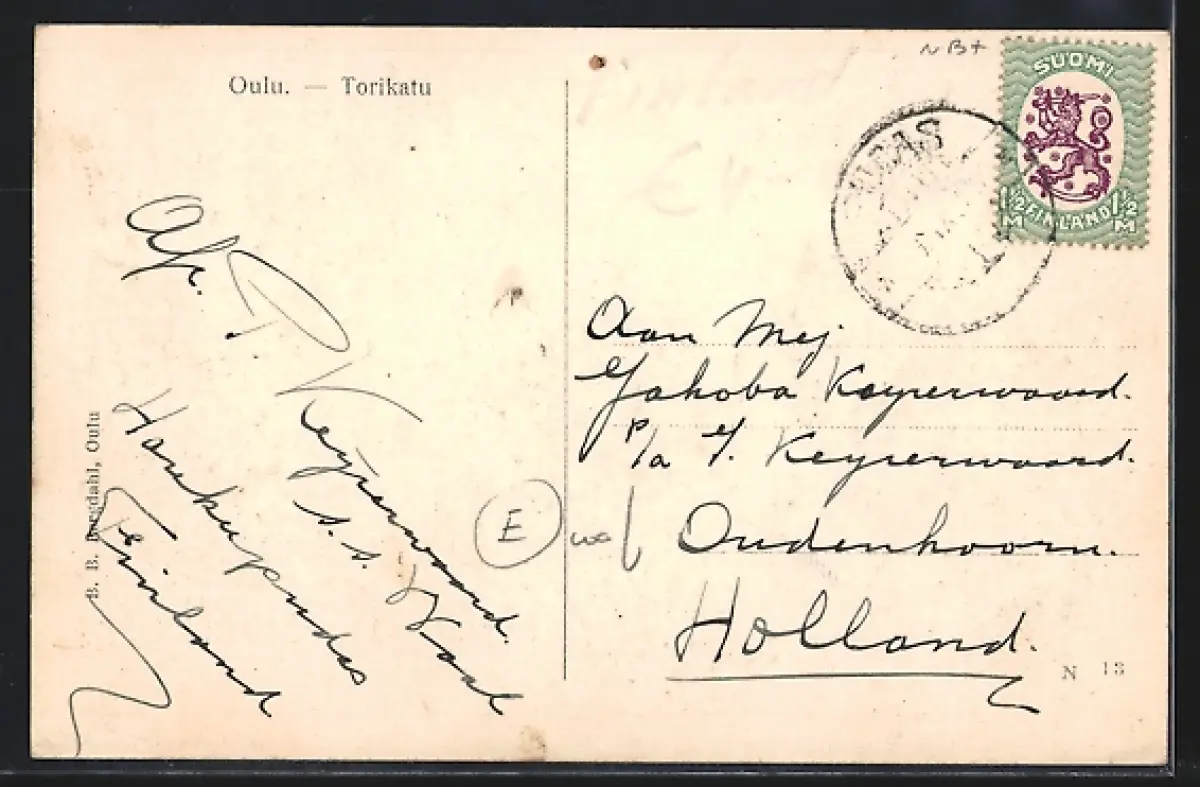 Oulu. — Torikatu
NB+
SUOMI
1½ FINLAND 1½
M M
Afz.
P. Keyzerwaard.
s.s. Waal
Haukipudas
Finland
B. B. Bergdahl, Oulu
E
Aan Mej
Jakoba Keyzerwaard.
p/a J. Keyzerwaard.
Oudenhoorn.
Holland.
N 13